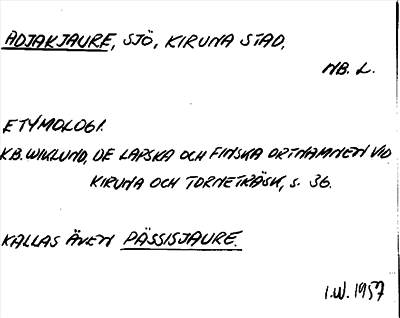 ADJAKJAURE, SJÖ, KIRUNA STAD,
NB. L.
ETYMOLOGI.
K.B. WIKLUND, DE LAPSKA OCH FINSKA ORTNAMNEN VID
KIRUNA OCH TORNETRÄSK, s. 36.
KALLAS ÄVEN PÄSSISJAURE.
I.W. 1957